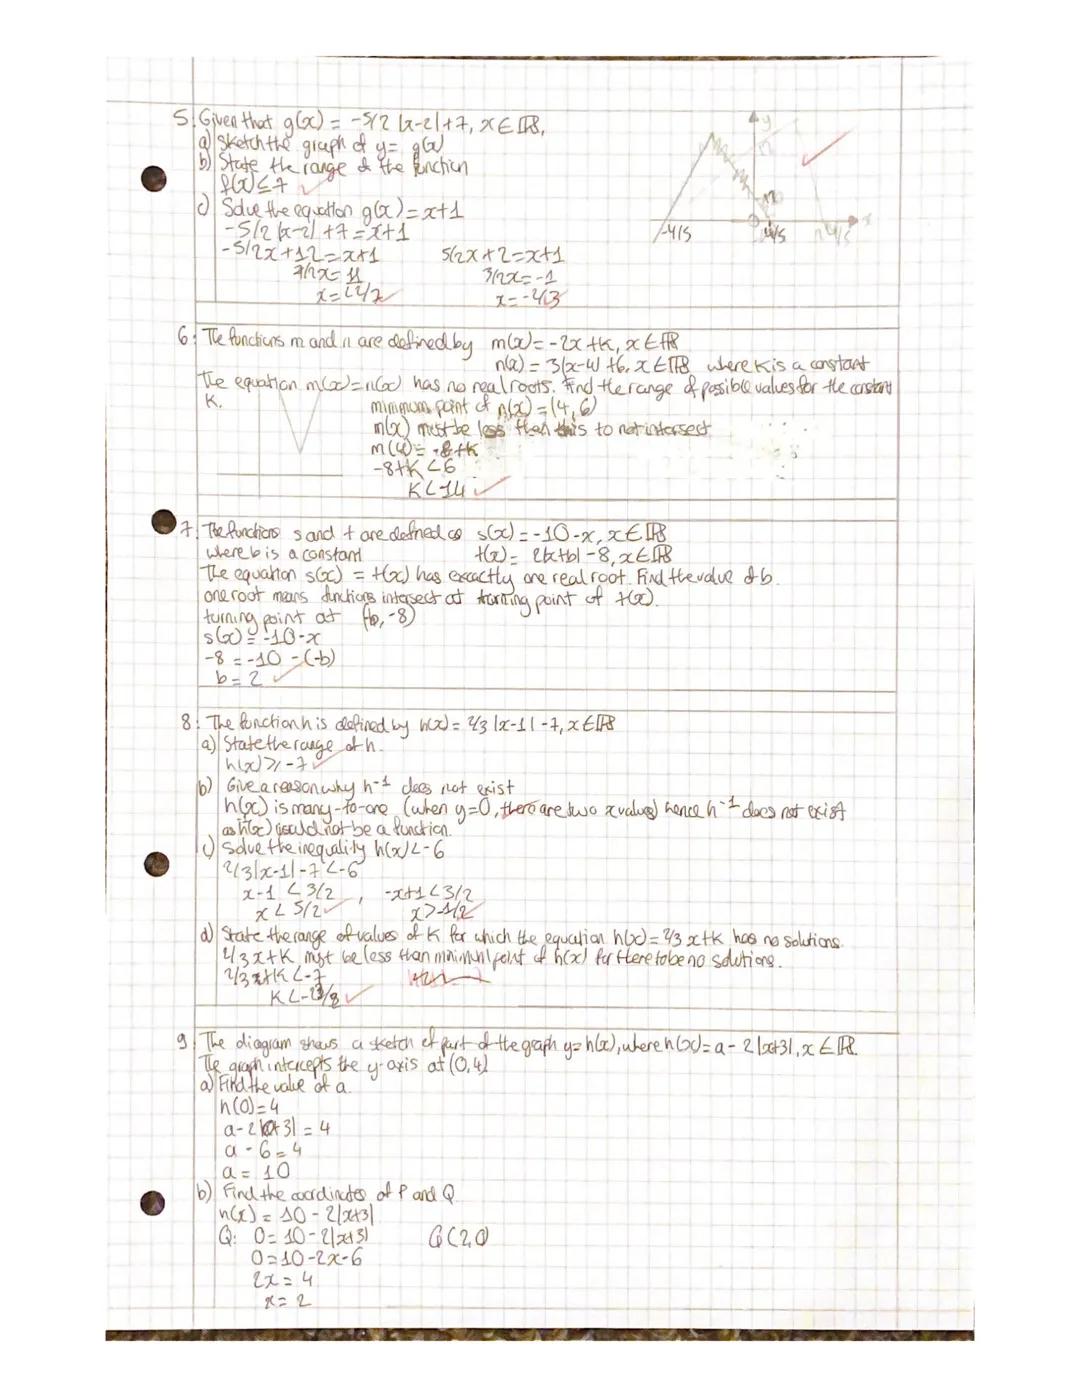 5. Given that g(x) = -5/2 |x-2|+7, x∈ℝ,
a) Sketch the graph of y= g(x)
b) State the range of the function
f(x)≤7
c) Solve the equation g(x)=x+1
-5/2 |x-2| +7=x+1
-5/2x+12=x+1   5/2x+2=x+1
7/2x=11   3/2x=-1
x=22/7   x=-2/3
y
-4/5
x
6. The functions m and n are defined by m(x)=-2x+K, x∈ℝ
n(x) = 3|x-4|+6, x∈ℝ where K is a constant
The equation m(x)=n(x) has no real roots. Find the range of possible values for the constant
K.
minimum point of n(x)=(4,6)
m(x) must be less than this to not intersect
m(4)=-8+K
-8+K<6
K<14
7. The functions s and t are defined as s(x)=-10-x, x∈ℝ
where b is a constant   t(x)= 2|x+b|-8, x∈ℝ
The equation s(x) = t(x) has exactly one real root. Find the value of b.
one root means functions intersect at turning point of t(x).
turning point at (-b,-8)
s(x)=-10-x
-8=-10-(-b)
b=2
8. The function h is defined by h(x)= 2/3 |x-1|-7, x∈ℝ
a) State the range of h.
h(x)≥-7
b) Give a reason why h-1 does not exist
h(x) is many-to-one (when y=0, there are two x values) hence h-1 does not exist
as h(x) would not be a function.
c) Solve the inequality h(x)<-6
2/3|x-1|-7<-6
x-1 <3/2 , -x+1<3/2
x<5/2   x>-1/2
d) State the range of values of K for which the equation h(x)=2/3 x+K has no solutions.
2/3x+K must be less than minimum point of h(x) for there to be no solutions.
2/3x+K<-7
K<-23/3
9. The diagram shows a sketch of part of the graph y=h(x), where h(x)=a-2|x+3|, x∈ℝ.
The graph intercepts the y-axis at (0,4)
a) Find the value of a.
h(0)=4
a-2|0+3|=4
a-6=4
a=10
b) Find the coordinates of P and Q.
h(x)=10-2|x+3|
Q: 0=10-2|x+3|   Q(2,0)
0=10-2x-6
2x=4
x=2